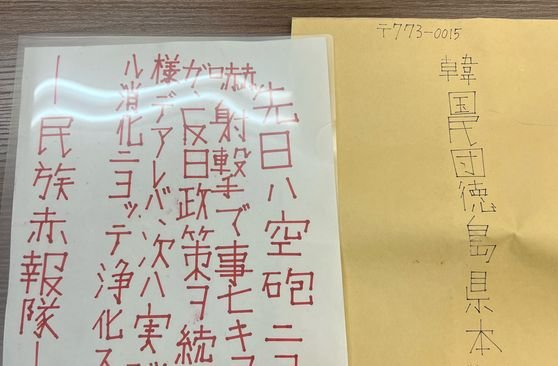 〒773-0015
韓国民団徳島県本
先日ハ空砲ニ
嚇射撃で事セキ
ガ、反日政策ヲ続
様デアレバ、次ハ実
ル消化ニヨッテ浄化ス
ー民族赤報隊ー